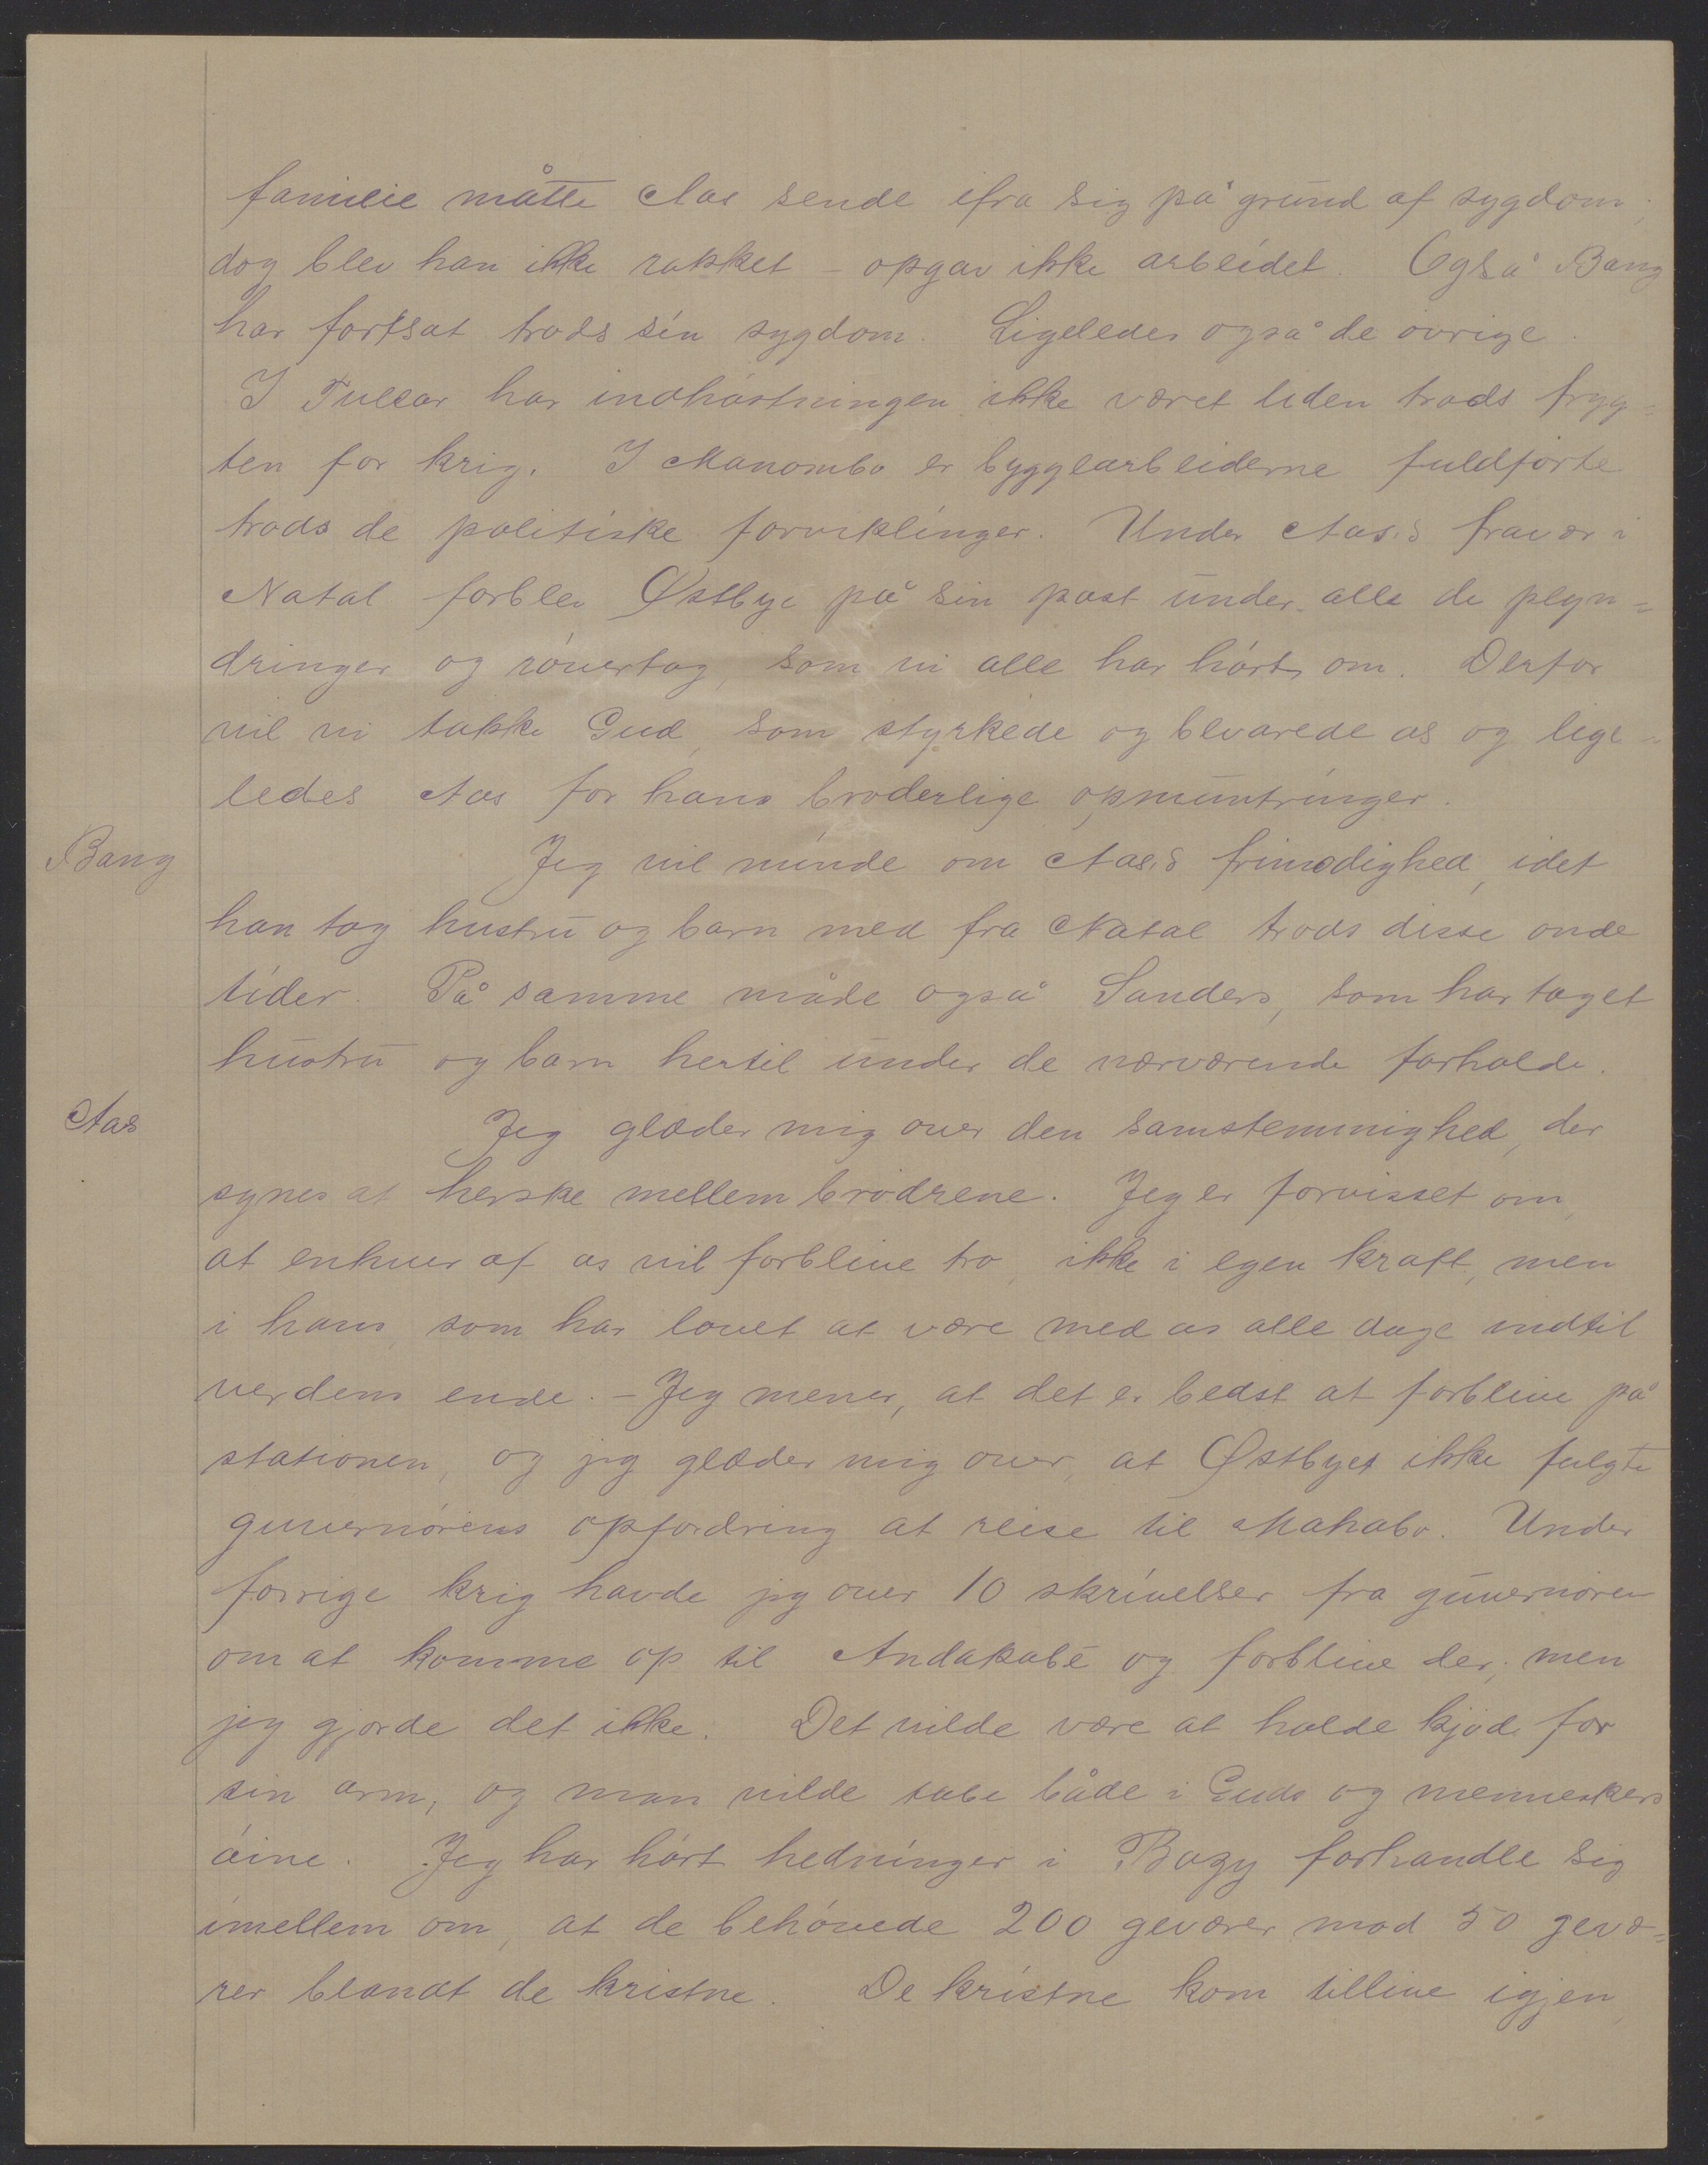 familie måtte Aas sende ifra sig på grund af sygdom;
dog blev han ikke rokket – opgav ikke arbeidet. Også Bang
har fortsat trods sin sygdom. Ligeledes også de övrige.
I Tulear har indhöstningen ikke været liden trods fryg=
ten for krig. I Manombo er byggearbeiderne fuldförte
trods de politiske forviklinger. Under Aas.s fravær i
Natal forblev Østbye på sin post under alle de plyn=
dringer og rövertog, som vi alle har hört om. Derfor
vil vi takke Gud, som styrkede og bevarede os og lige=
ledes Aas for hans broderlige opmuntringer.
Bang Jeg vil minde om Aas.s frimodighed, idet
han tog hustru og barn med fra Natal trods disse onde
tider. På samme måde også Sanders, som har taget
hustru og barn hertil under de nærværende forholde.
Aas Jeg glæder mig over den samstemmighed, der
synes at herske mellem brödrene. Jeg er forvisset om,
at enhver af os vil forblive tro, ikke i egen kraft, men
i hans, som har lovet at være med os alle dage indtil
verdens ende. – Jeg mener, at det er bedst at forblive på
stationen, og jeg glæder mig over, at Østbyes ikke fulgte
guvernörens opfordring at reise til Mahabo. Under
forrige krig havde jeg over 10 skrivelser fra guvernören
om at komme op til Andakabe og forblive der; men
jeg gjorde det ikke. Det vilde være at holde kjöd for
sin arm, og man vilde tabe både i Guds og menneskers
öine. Jeg har hört hedninger i Bazy forhandle sig
imellem om, at de behövede 200 geværer mod 50 gevæ=
rer blandt de kristne. De kristne kom tillive igjen,